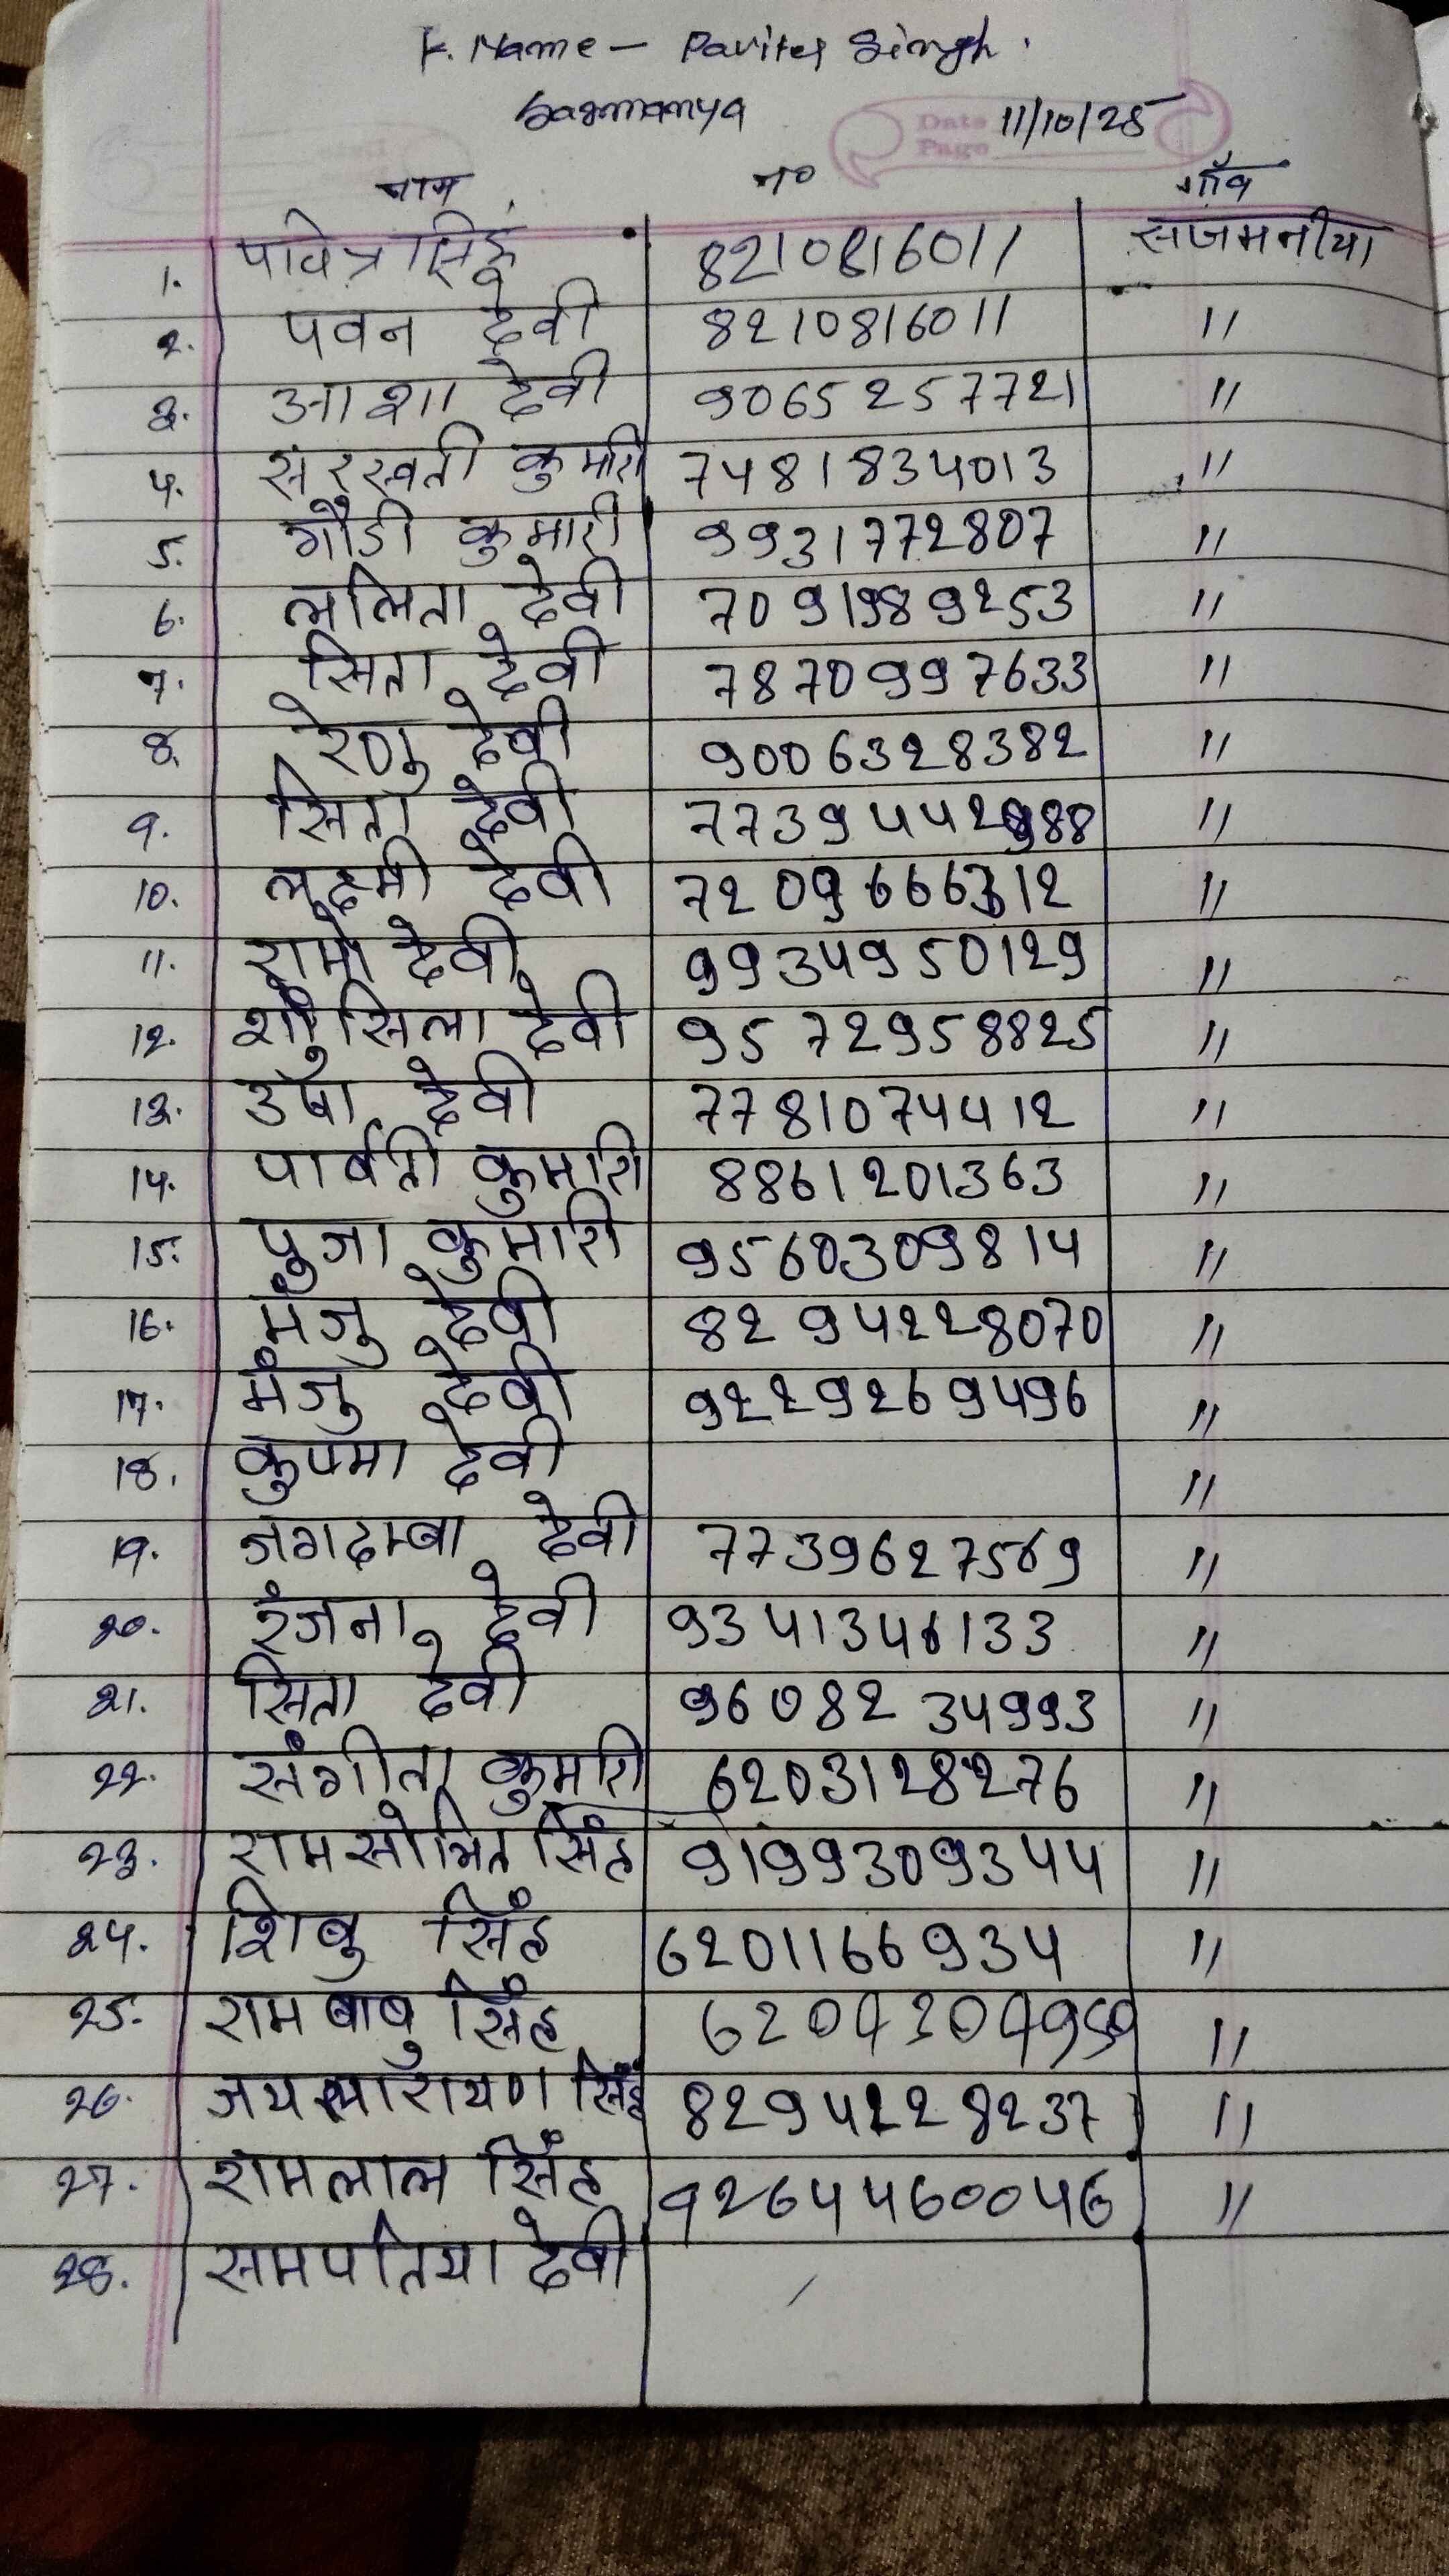 F. Name - Paviter Singh.
Sasmanya 11/10/25
Date
Page
नाम नं० गाँव
1. पवित्र सिंह 8210816011 सजमनीया
2. पवन देवी 8210816011 "
3. आशा देवी 9065257721 "
4. सरस्वती कुमारी 7481834013 "
5. गौडी कुमारी 9931772807 "
6. ललिता देवी 7091989253 "
7. सिता देवी 7870997633 "
8. रेणु देवी 9006328382 "
9. सिता देवी "
10. लक्ष्मी देवी 7209666312 "
11. रामो देवी 9934950129 "
12. देवी 9572958825 "
13. उषा देवी 7781074412 "
14. पार्वती कुमारी 8861201363 "
15. पुजा कुमारी 9560309814 "
16. मंजु देवी 8294228070 "
17. मंजु देवी 9229269496 "
18. देवी "
19. जगदम्बा देवी 7739627569 "
20. रंजना देवी 9341346133 "
21. सिता देवी 9608234993 "
22. संगीता कुमारी 6203128276 "
23. रामसोभित सिंह 9199309344 "
24. शिबु सिंह 6201166934 "
25. राम बाबु सिंह "
26. सिंह 8294228237 "
27. रामलाल सिंह 92644460046 "
28. समपतिया देवी